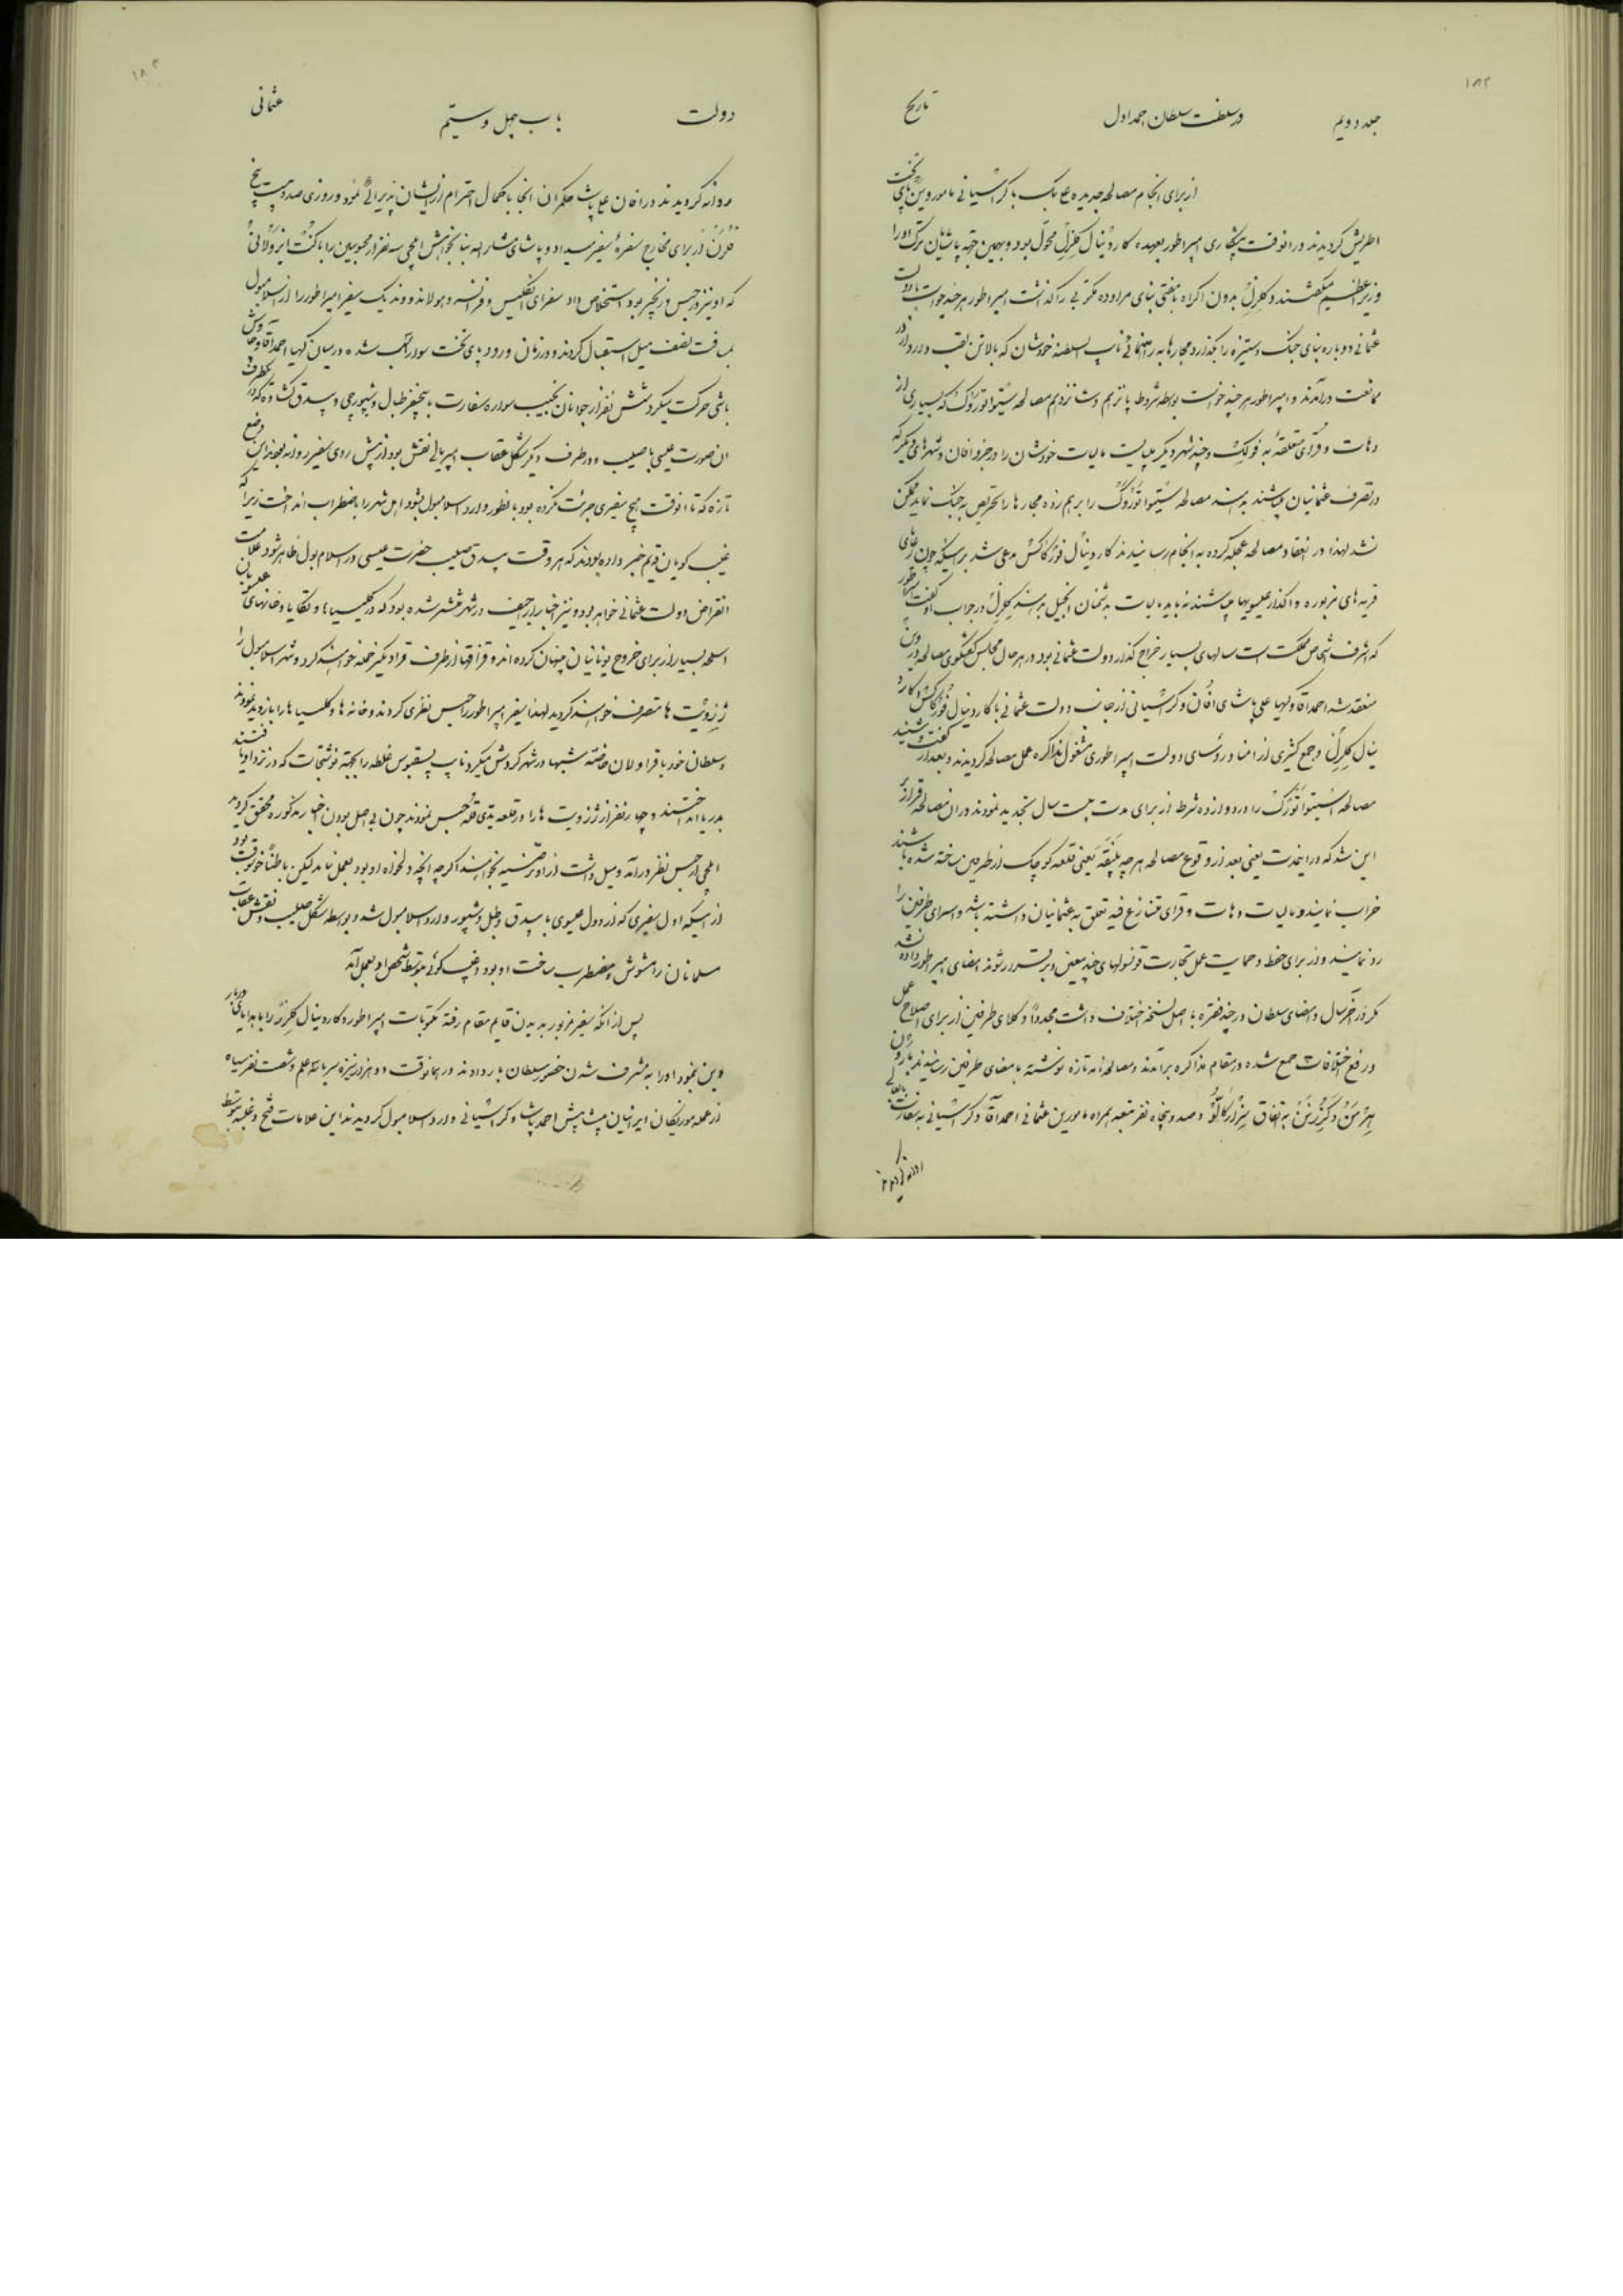 ۱۸۲
جلد دویم در سلطنت سلطان احمد اول تاریخ
از برای انجام مصالحه جدیده ع بک با کراسیانی مامور وین پای تخت
اطریش کردیدند در انوقت پیشکاری امپراطور بعهده کاردینال کلزل محول بود و بهمین جهة پاشایان ترک او را
وزیر اعظم میکفتند و کلزل بدون اکراه با مفتی بنای مراوده مکتوبی را کذاشت امپراطور هر چند خواست با دولت
عثمانی دوباره بنای جنک و ستیزه را بکذارد مجارها به راهنمائی نایب السلطنه خودشان که بالاتن لقب داردار در
ممانعت درآمدند و امپراطور هر چند خواست بواسطه شروط پانزدهم و شانزدهم مصالحه ستیوا توروک که بسیاری از
دهات و قرای متعلقه به فولک و چند شهر دیکر میبایست مالیات خودشان را در جزو افان و شهرهای دیکر که
در تصرف عثمانیان میباشند بدهند مصالحه ستیوا توروک را برهم زده مجارها را تحریص به جنک نماید ممکن
نشد لهذا در انعقاد مصالحه عجله کرده به انجام رسانیدند کاردینال فورکاکس مدعی شد بر اینکه چون رعایای
قریه های مزبوره واکذار عیسویها میباشند نباید مالیات بدشمنان انجیل بدهند کلزل در جواب او کفت همانطور
که اشرف اشخاص مملکت است سالهای بسیار خراج کذار دولت عثمانی بود در هر حال مجلس کفتکوی مصالحه در وین
منعقد شد احمد آقا و کهیا علی پاشای افان و کراسیانی از جانب دولت عثمانی با کاردینال فورکاکس و کارد
ینال کلزل و جمع کثیری از امنا و رؤسای دولت امپراطوری مشغول مذاکره عمل مصالحه کردیدند و بعد از کفت و شنید
مصالحه استیوا تورک را در دوازده شرط از برای مدت بیست سال تجدید نمودند در ان مصالحه قرار
این شد که در اینمدت یعنی بعد از وقوع مصالحه هر چه پلنقه یعنی قلعه کوچک از طرفین ساخته شده باشند
خراب نمایند و مالیات دهات و قرای متنازع فیه تعلق به عثمانیان داشته باشد و اسرای طرفین را
رد نمایند و از برای حفظ و حمایت عمل تجارت قونسولهای چند معین و برقرار شوند امضای امپراطور داده نشد
مکر در آخر سال و امضای سلطان در چند فقره با اصل نسخه اختلاف داشت مجدداً وکلای طرفین از برای اصلاح عمل
و رفع اختلافات جمع شده در مقام مذاکره برآمدند و مصالحه نامه تازه نوشته بامضای طرفین رسانیدند بارون
به اتفاق و صد و پنجاه نفر تبعه همراه مامورین عثمانی احمد آقا و کراسیانی به سفارت
روانه کردیدند
۱۸۳
دولت باب چهل و سیّم عثمانی
روانه کردیدند در افان علی پاشا حکمران انجا با کمال احترام از ایشان پذیرائی نمود و روزی صد و بیست پنج
از برای مخارج سفره سفیر میداد و پاشای مشارالیه بنا بخواهش ایلچی سه نفر از محبوسین را با کنت ایزولانی
که او نیز در حبس و زنجیر بود استخلاص داد سفرای انکلیس و فرانسه و هولاند و وندیک سفیر امپراطور را از اسلامبول
بمسافت نصف میل استقبال کردند و در زمان ورود پای تخت سوار اسب شده در میان کهیا احمد آقا و چاوش
باشی حرکت میکرد شش نفر از جوانان نجیب سواره سفارت با پنج نفر طبال و شیپورچی و بیدق کشاده که در یکطرف
ان صورت عیسی با صلیب و در طرف دیکر شکل عقاب امپریالی نقش بود از پیش روی سفیر روانه بودند این وضع
تازه که تا انوقت هیچ سفیری جرئت نکرده بود بانطور وارد اسلامبول بشود اهل شهر را باضطراب انداخت زیرا که
غیب کویان قدیم خبر داده بودند که هر وقت بیدق صلیب حضرت عیسی در اسلامبول ظاهر شود علامت
انقراض دولت عثمانی خواهد بود و نیز اخبار اراجیف در شهر منتشر شده بود که در کلیسیاها و تکایا و خانهای عیسویان
اسلحه بسیار از برای خروج یونانیان پنهان کرده اند و قزاقها از طرف قرادنکیز حمله خواهند کرد و شهر اسلامبول را
ژزویت ها متصرف خواهند کردید لهذا سفیر امپراطور را حبس نظری کردند و خانه ها و کلیسیاها را بازدید نمودند
و سلطان خود با قراولان خاصه شبها در شهر کردش میکرد نایب پسقپوس غلطه را بجهة نوشتجات که در نزد او یافتند
بدریا انداختند و چهار نفر از ژزویت ها را در قلعه یدی قله حبس نمودند چون بی اصل بودن اخبار مذکوره محقق کردید
ایلچی از حبس نظر درآمد و میل داشت از او ترضیه بخواهند اکر چه انچه دلخواه او بود بعمل نیامد لیکن باطناً خوشوقت بود
از اینکه اول سفیری که از دول عیسوی با بیدق و طبل و شیپور وارد اسلامبول شد و بواسطه شکل صلیب و نقش عقاب
مسلمانان را مشوش و مضطرب ساخت او بود و غیب کوئی بتوسط شخص او بعمل آمد
پس از آنکه سفیر مزبور بدیدن قایم مقام رفته مکتوبات امپراطور و کاردینال کلزل را با هدایای دربار
وین نمود او را به مشرف شدن حضور سلطان بار دادند در همانوقت دو هزار نیزه سر با علم و شصت نفر سپاه
از عمله مورنکان ایرانیان پیشاپیش احمد پاشا و کراسیانی وارد اسلامبول کردیدند این علامات فتح و غلبه بتوسط